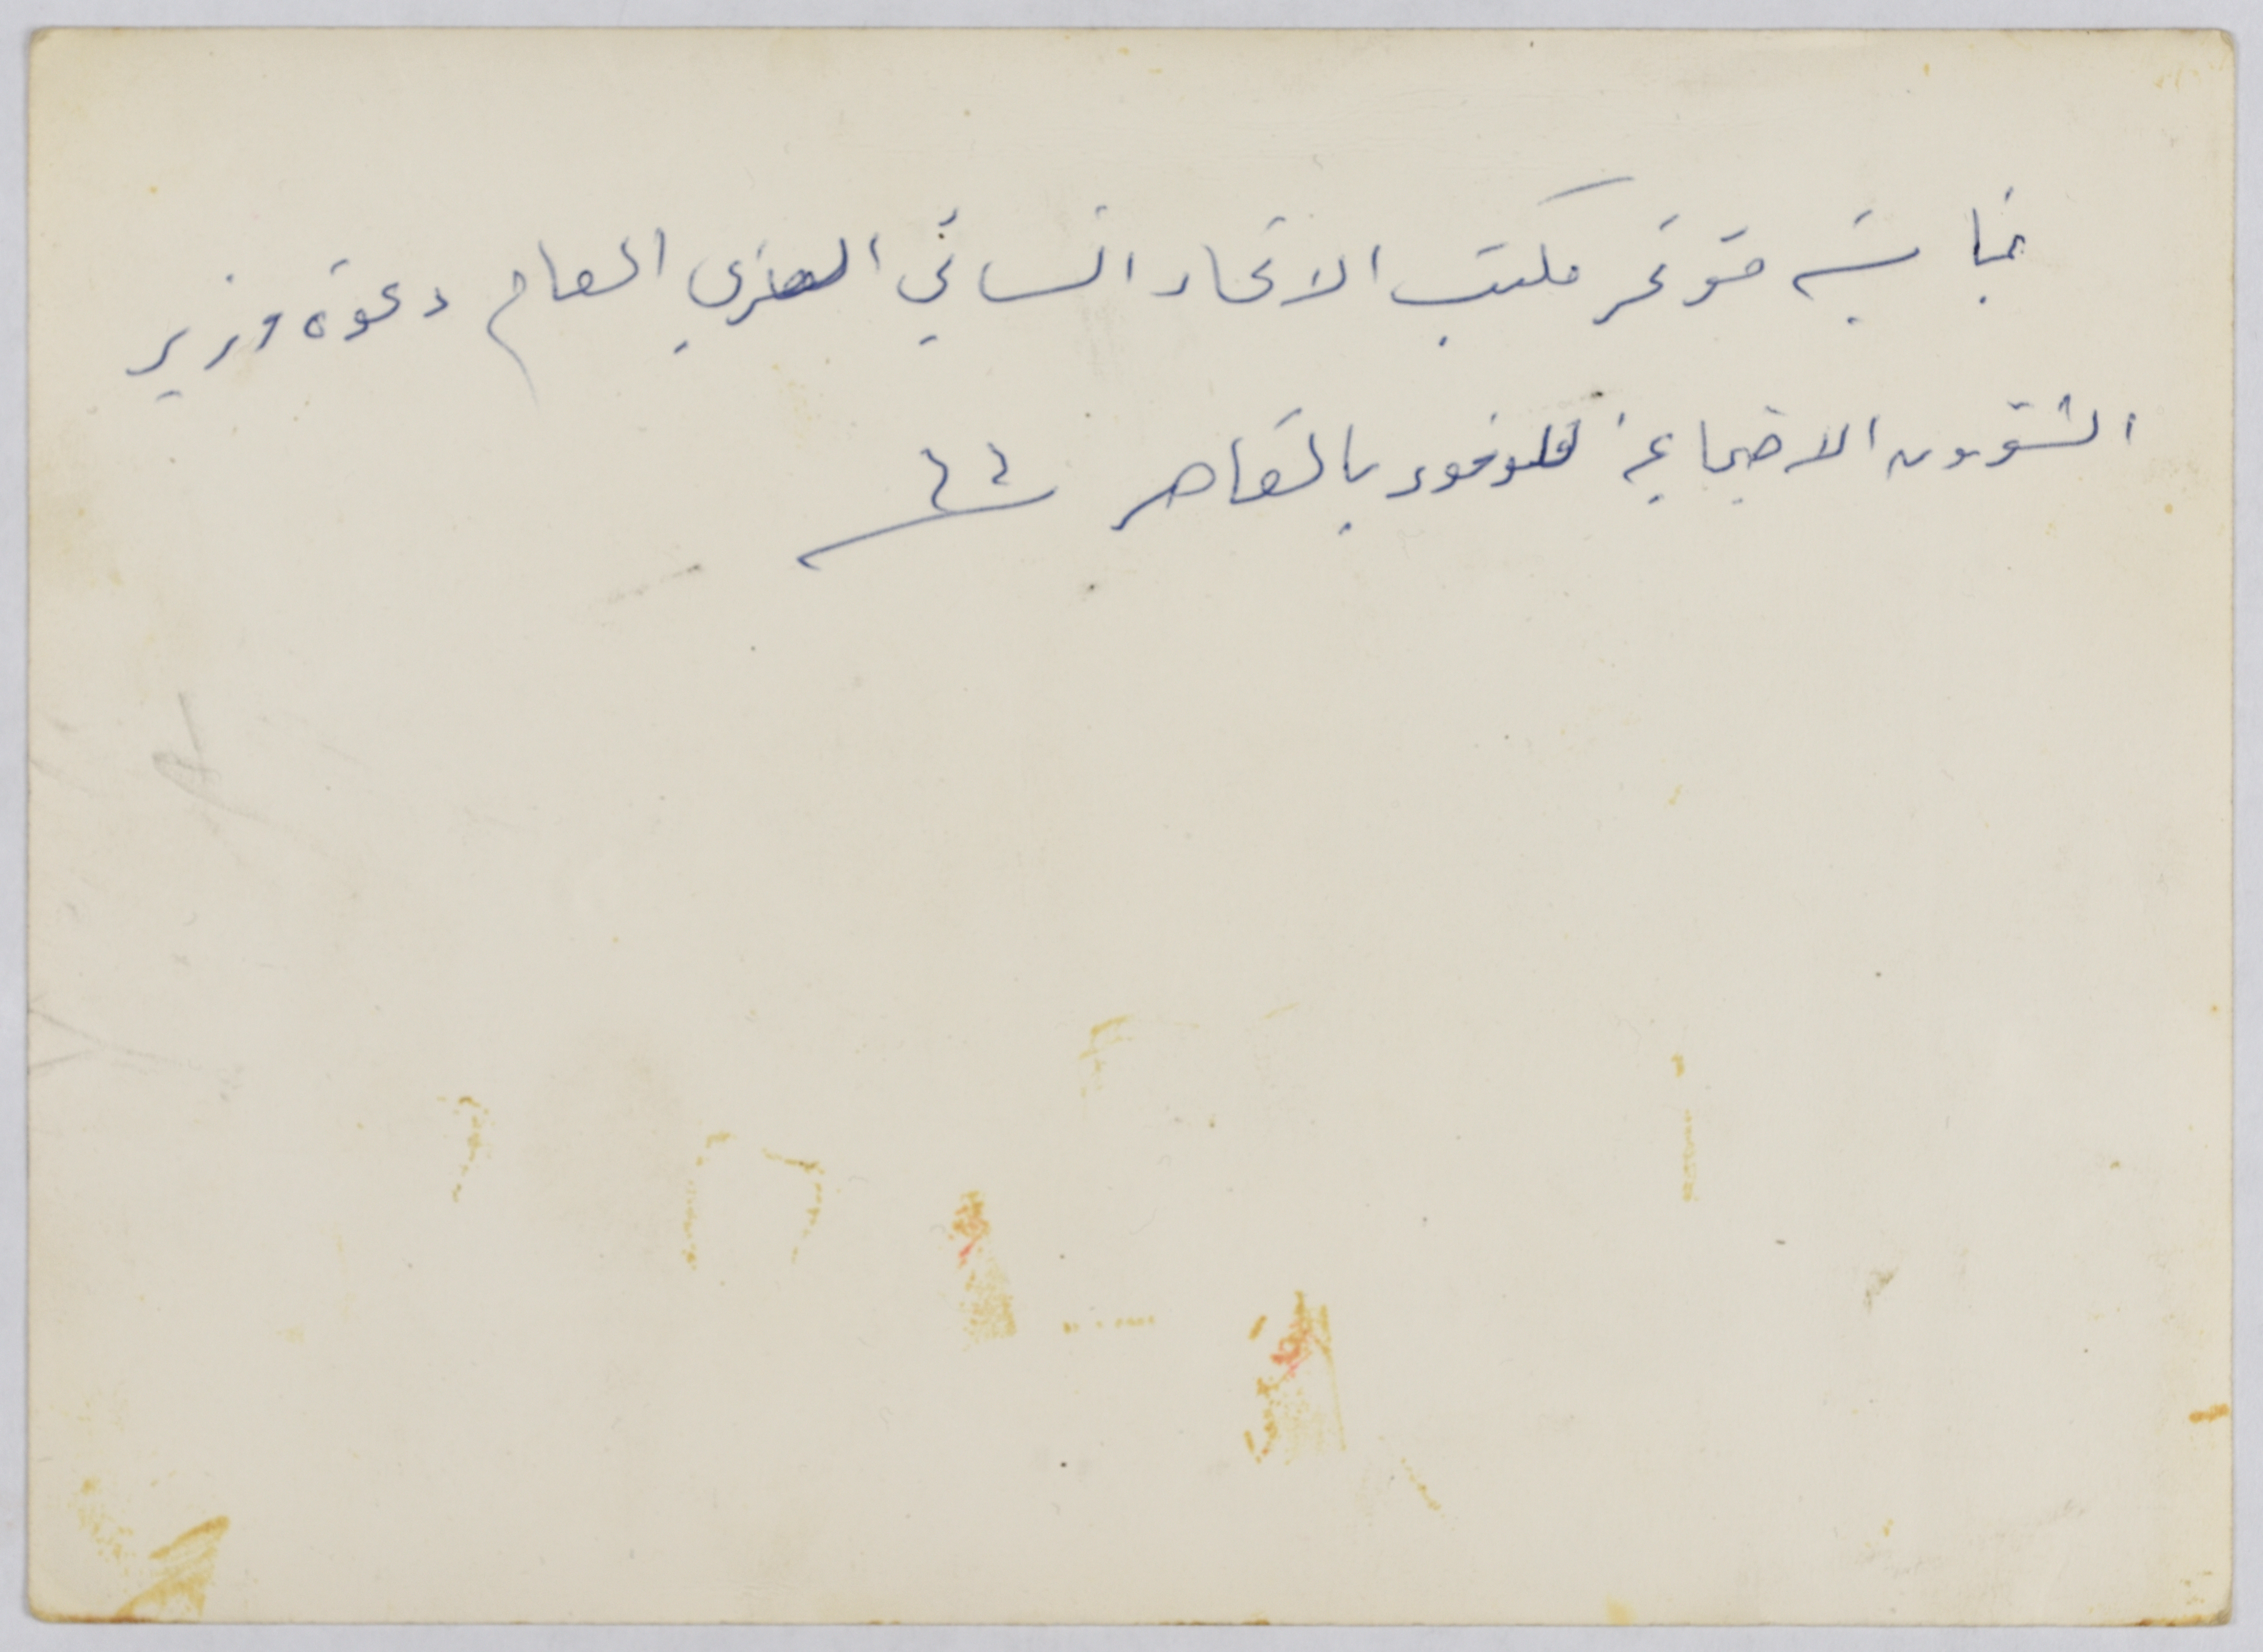 بمناسبة مؤتمر مكتب الاتحاد النسائي العربي العام دعوة وزير
الشؤون الاجتماعية للوفود بالقاهر ٦٤